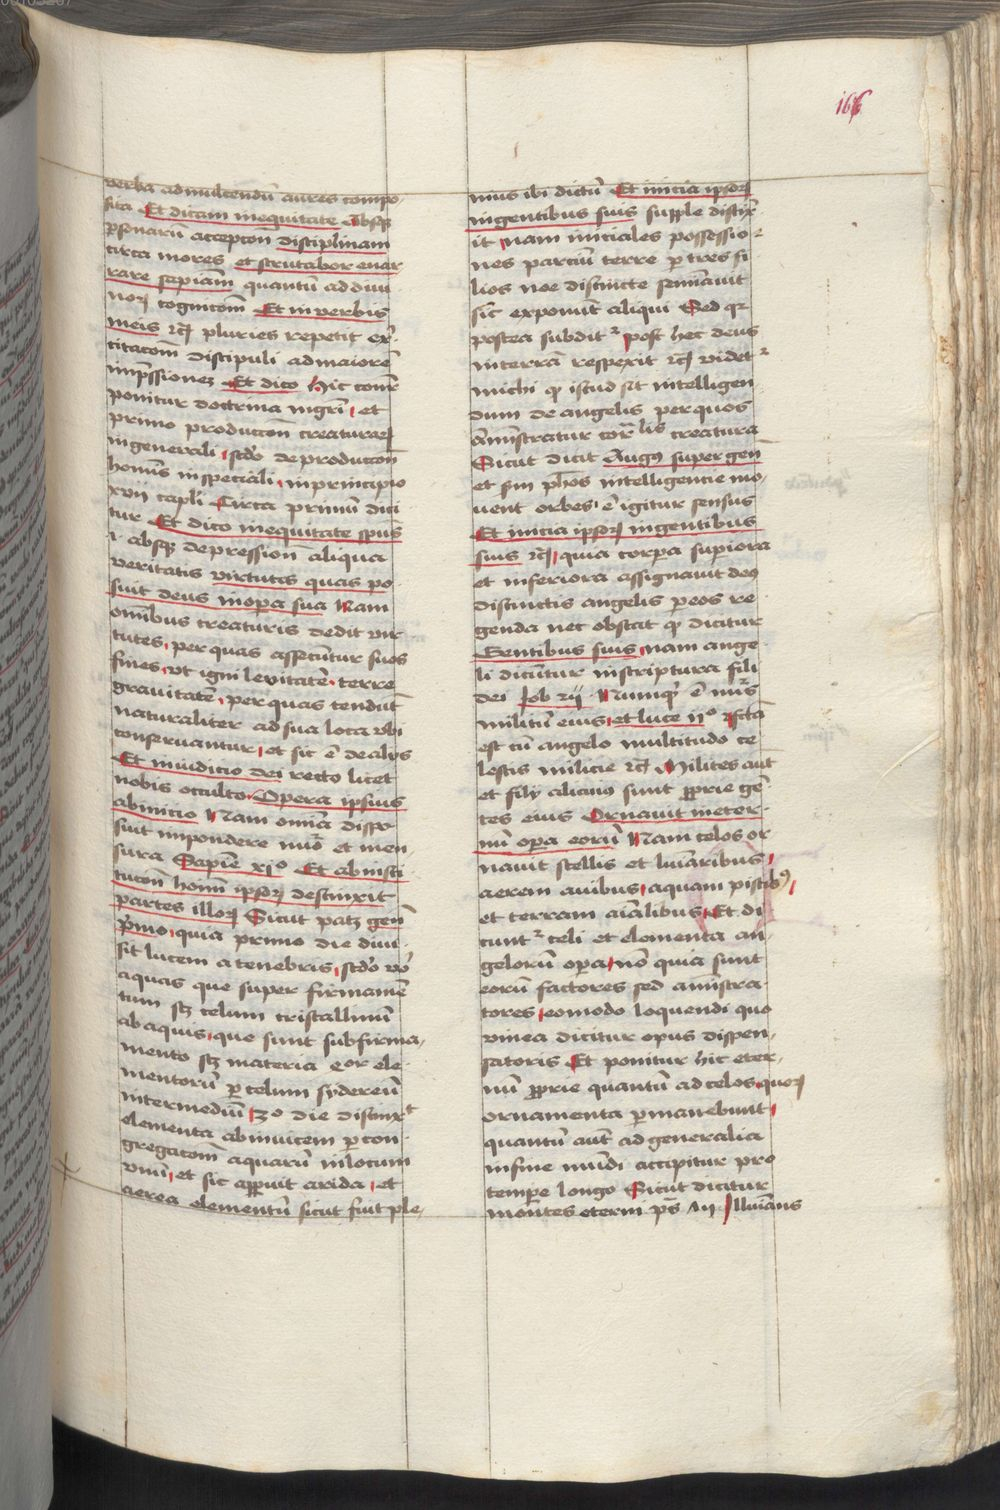 166
verba ad mulcendū aures compo
sita Et dicam in equitate Absqꝫ
ꝑsonarū accepcon̄ disciplinam
circa mores et scrutabor enar
rare sapiam̄ quantū ad diui
noꝝ cognicom̄ Et in verbis
meis ꝛcꝫ pluries repetit ex̄
citacom̄ discipuli ad maiorē
imp̄ssionez Et dico Hic
ponitur doctrina mgr̄i et
primo produccom̄ creaturaꝝ
in generali sc̄do de produccōn
homīs in speciali in principio
xvij capl̄i Circa primū dici
tur Et dico in equitate spūs
i absqꝫ depression̄ aliqua
veritatis virtutes quas po
suit deus in oꝑa sua Nam
omībus creaturis dedit vir
tutes per quas assecūntur suos
fines vt igni leuitatē terre
grauitatē per quas tendūt
naturaliter ad sua loca vbi
conseruantur et sic ē de alijs
Et in iudicio dei recto licet
nobis occulto Opera ipsius
ab inicio Nam omīa dispo
suit in pondere nūo et men
sura Sapiē xiº Et ab insti
tucom̄ ipsoꝝ destinxit
partes illoꝝ Sicut patꝫ geñ
pͥmo quia primo die diui
sit lucem a tenebris sc̄do v̄o
aquas que super firmamē
tum scꝫ celum cristallinū
ab aquis que sunt sub firma
mento scꝫ materia eor ele
mentorū ꝑ celum sydereū
intermediū 3º die distinxᵗ
elementa ab inuicem ꝑ con
gregacom̄ aquarū in locum
vnū et sic apꝑuit arida et
aerea elementū sicut fuit ple
nius ibi dictū Et inicia ipsoꝝ
in gentibus suis supple distīx
it nam iniciales possessio
nes parciū terre ꝑ tres fi
lios noe distincte semīauit
sic̄ exponūt aliqui Sed qꝛ
postea subditᷣ post hec deus
in terrā respexit ꝛcꝫ videtᷣ
michi qꝫ istud sit intelligen
dum de angelis per quos
amīstratur creatura
Sicut dicit Augꝰ super geñ
et sm̄ ph̄os intelligencie mo
uent orbes ē igitur sensus
Et inicia ipsoꝝ in gentibus
suis ꝛcꝫ quia corꝑa suꝑiora
et inferiora assignauit deꝰ
distinctis angelis ꝑ eos re
genda nec obstat qꝫ dicitur
Gentibus suis nam ange
li dicūtur in scriptura filij
dei Job Numqꝫ ē nūs
militū eius et luce ijº fc̄ā
est cū angelo multitudo ce
lestis milicie ꝛcꝫ Milites aut̄
et filij alicuiꝰ sunt ꝓprie gē
tes eius Ornauit in eter
nū oꝑa eorū Nam celos or
nauit stellis et luīaribus
aerem auibus aquam piscibꝰ
et terram aīalibus Et di
cuntᷣ celi et elementa an
gelorū oꝑa nō quia sunt
eorū factores sed amīstra
tores eo modo loquendi quo
vinea dicitur opus dispen
satoris Et ponitur hic eter
nū ꝓprie quantū ad celos quoꝝ
ornamenta ꝑmanebunt
quantū aut̄ ad generalia
in fine mūdi accipitur pro
temꝑe longo Sicut dicitur
montes eterni ps̄ Illuīans